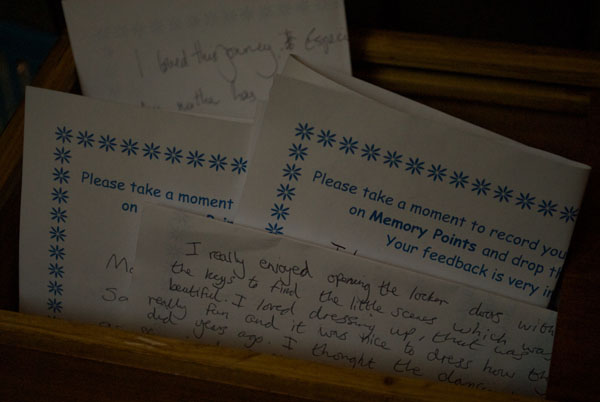 I loved this journey. & Espec
mother has
Please take a moment
on
Please take a moment to record you
on Memory Points and drop th
Your feedback is very in
I really enjoyed opening the locker doors with
the keys to find the little scenes which was
beautiful. I loved dressing up, that was
really fun and it was nice to dress how they
did years ago. I thought the